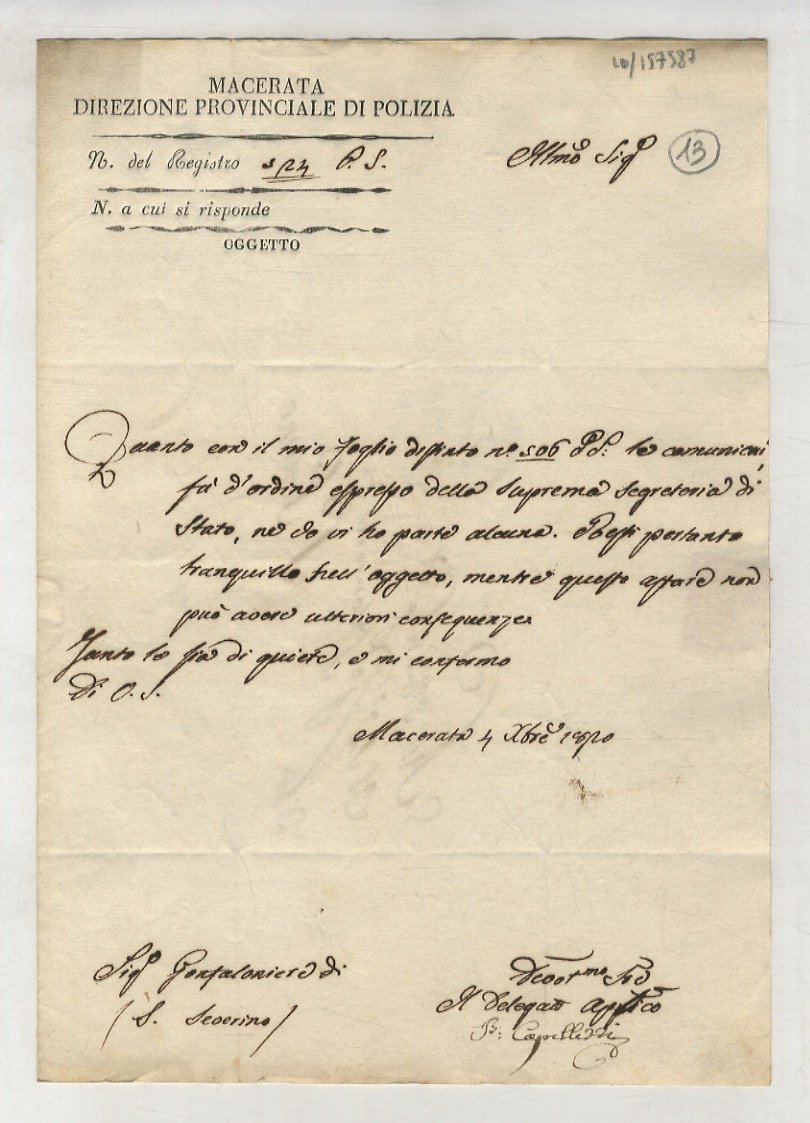 LO/157587
MACERATA
DIREZIONE PROVINCIALE DI POLIZIA
N. del Registro 524 P. S.
Illmo Sigr
13
N. a cui si risponde
OGGETTO
Quanto con il mio foglio distinto nº 506 P.S: le comunicai,
fù d'ordine espresso della Suprema Segreteria di
Stato, ne io vi ho parte alcuna. Resti pertanto
tranquillo sull'oggetto, mentre questo affare non
può avere ulteriori conseguenze.
Tanto le sia di quiete, e mi confermo
Di V. S.
Macerata 4 Xbre 1820
Sigr Gonfaloniere di
(S. Severino)
Devotmo
Il Delegato Applico